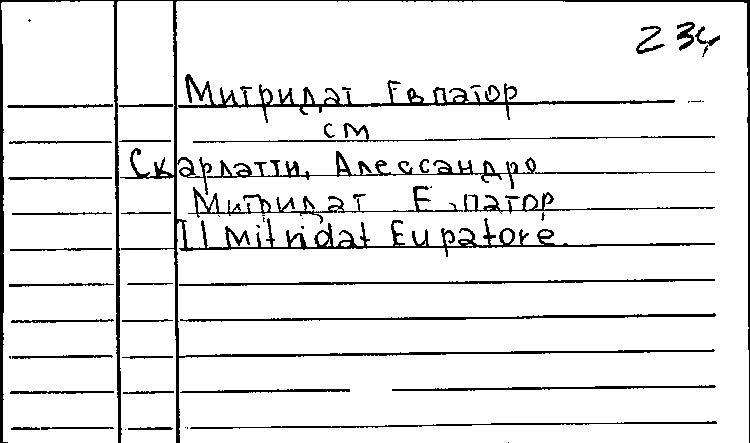 234
Митридат Евпатор
см
Скарлатти, Алессандро
Митридат Евпатор
Il Mitridat Eupatore.